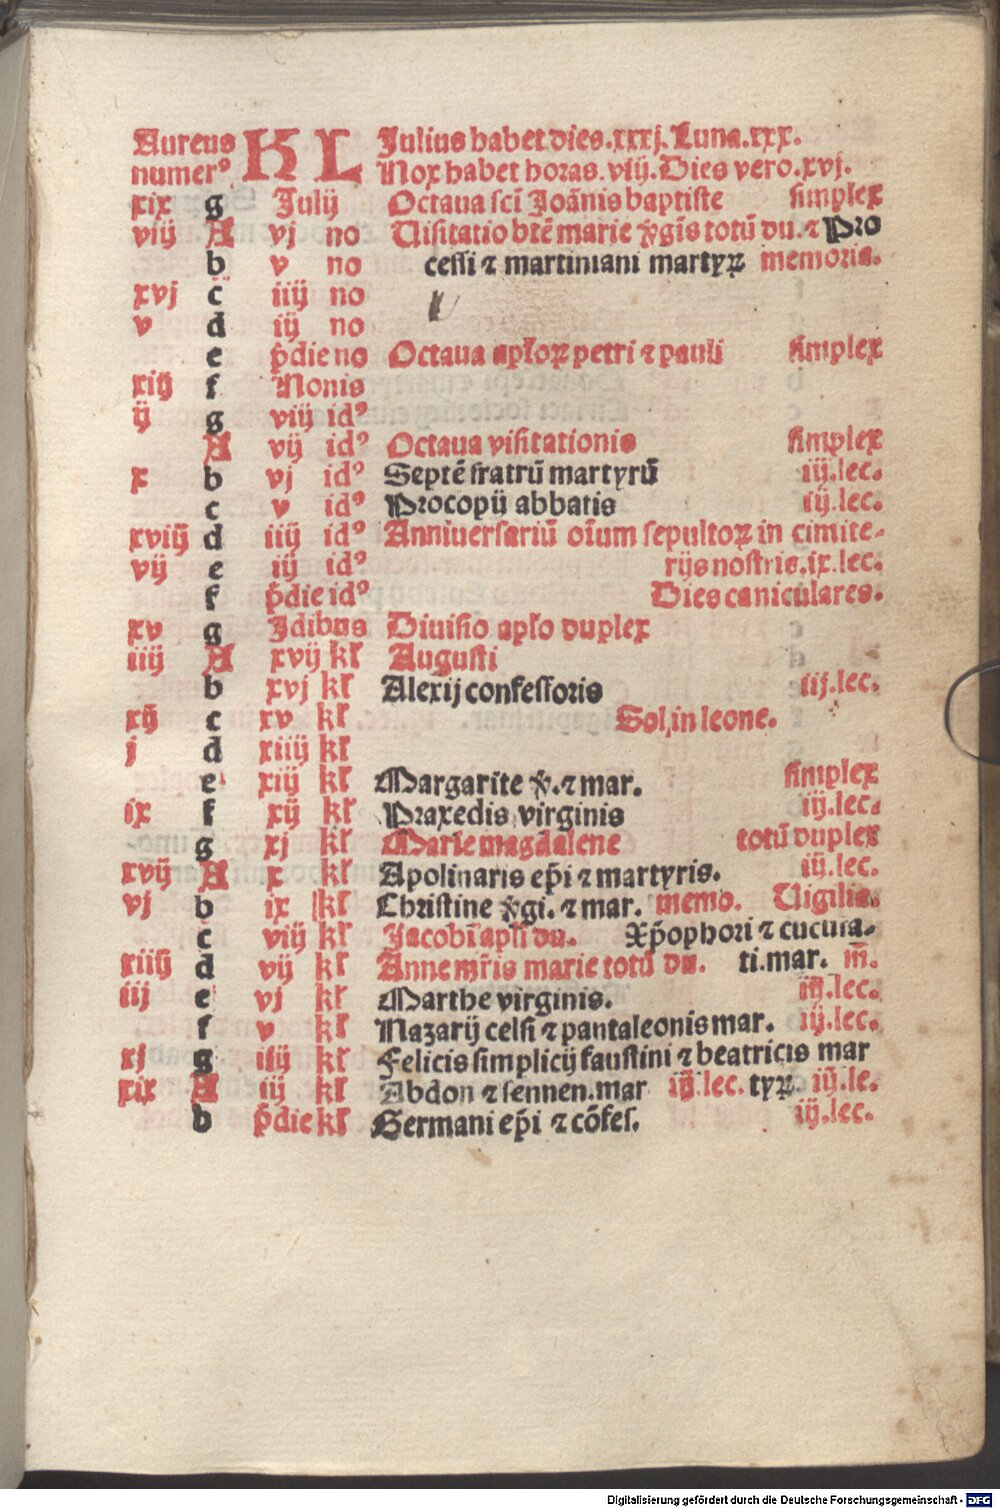 Aureus KL Julius habet dies.xxxj.Luna.xxx.
numerꝰ Nox habet horas.viij.Dies vero.xvj.
xix g Julij Octaua sci̅ Joa̅nis baptiste simplex
viij A vj no Uisitatio bte̅ marie v̓gi̅s totu̅ du.⁊ Pro
b v no cessi ⁊ martiniani martyꝝ memoria.
xvj c iiij no
v d iij no
e p̓die no Octaua aplo̅ꝝ petri ⁊ pauli simplex
xiij f Nonis
ij g viij idꝰ
A vij idꝰ Octaua visitationis simplex
x b vj idꝰ Septe̅ fratru̅ martyru̅ iij.lec.
c v idꝰ Procopij abbatis iij.lec.
xviij d iiij idꝰ Anniuersariu̅ oi̅um sepultoꝝ in cimite-
vij e iij idꝰ rijs nostris.ix.lec.
f p̓die idꝰ Dies caniculares.
xv g Idibus Diuisio aplo̅ duplex
iiij A xvij kl̓ Augusti
b xvj kl̓ Alexij confessoris iij.lec.
xij c xv kl̓ Sol in leone.
j d xiiij kl̓
e xiij kl̓ Margarite v̓.⁊ mar. simplex
ix f xij kl̓ Praxedis virginis iij.lec.
g xj kl̓ Marie magdalene totu̅ duplex
xvij A x kl̓ Apolinaris ep̅i ⁊ martyris. iij.lec.
vj b ix kl̓ Christine v̓gi. ⁊ mar. memo. Uigilia.
c viij kl̓ Jacobi apl̅i du. Xp̅ophori ⁊ cucufa-
xiiij d vij kl̓ Anne mr̅is marie totu̅ du. ti.mar. m̅.
iij e vj kl̓ Marthe virginis. iij.lec.
f v kl̓ Nazarij celsi ⁊ pantaleonis mar. iij.lec.
xj g iiij kl̓ Felicis simplicij faustini ⁊ beatricis mar
xix A iij kl̓ Abdon ⁊ sennen.mar iij.lec. tyꝝ. iij.le.
b p̓die kl̓ Germani ep̅i ⁊ co̅fes. iij.lec.
Digitalisierung gefördert durch die Deutsche Forschungsgemeinschaft - DFG